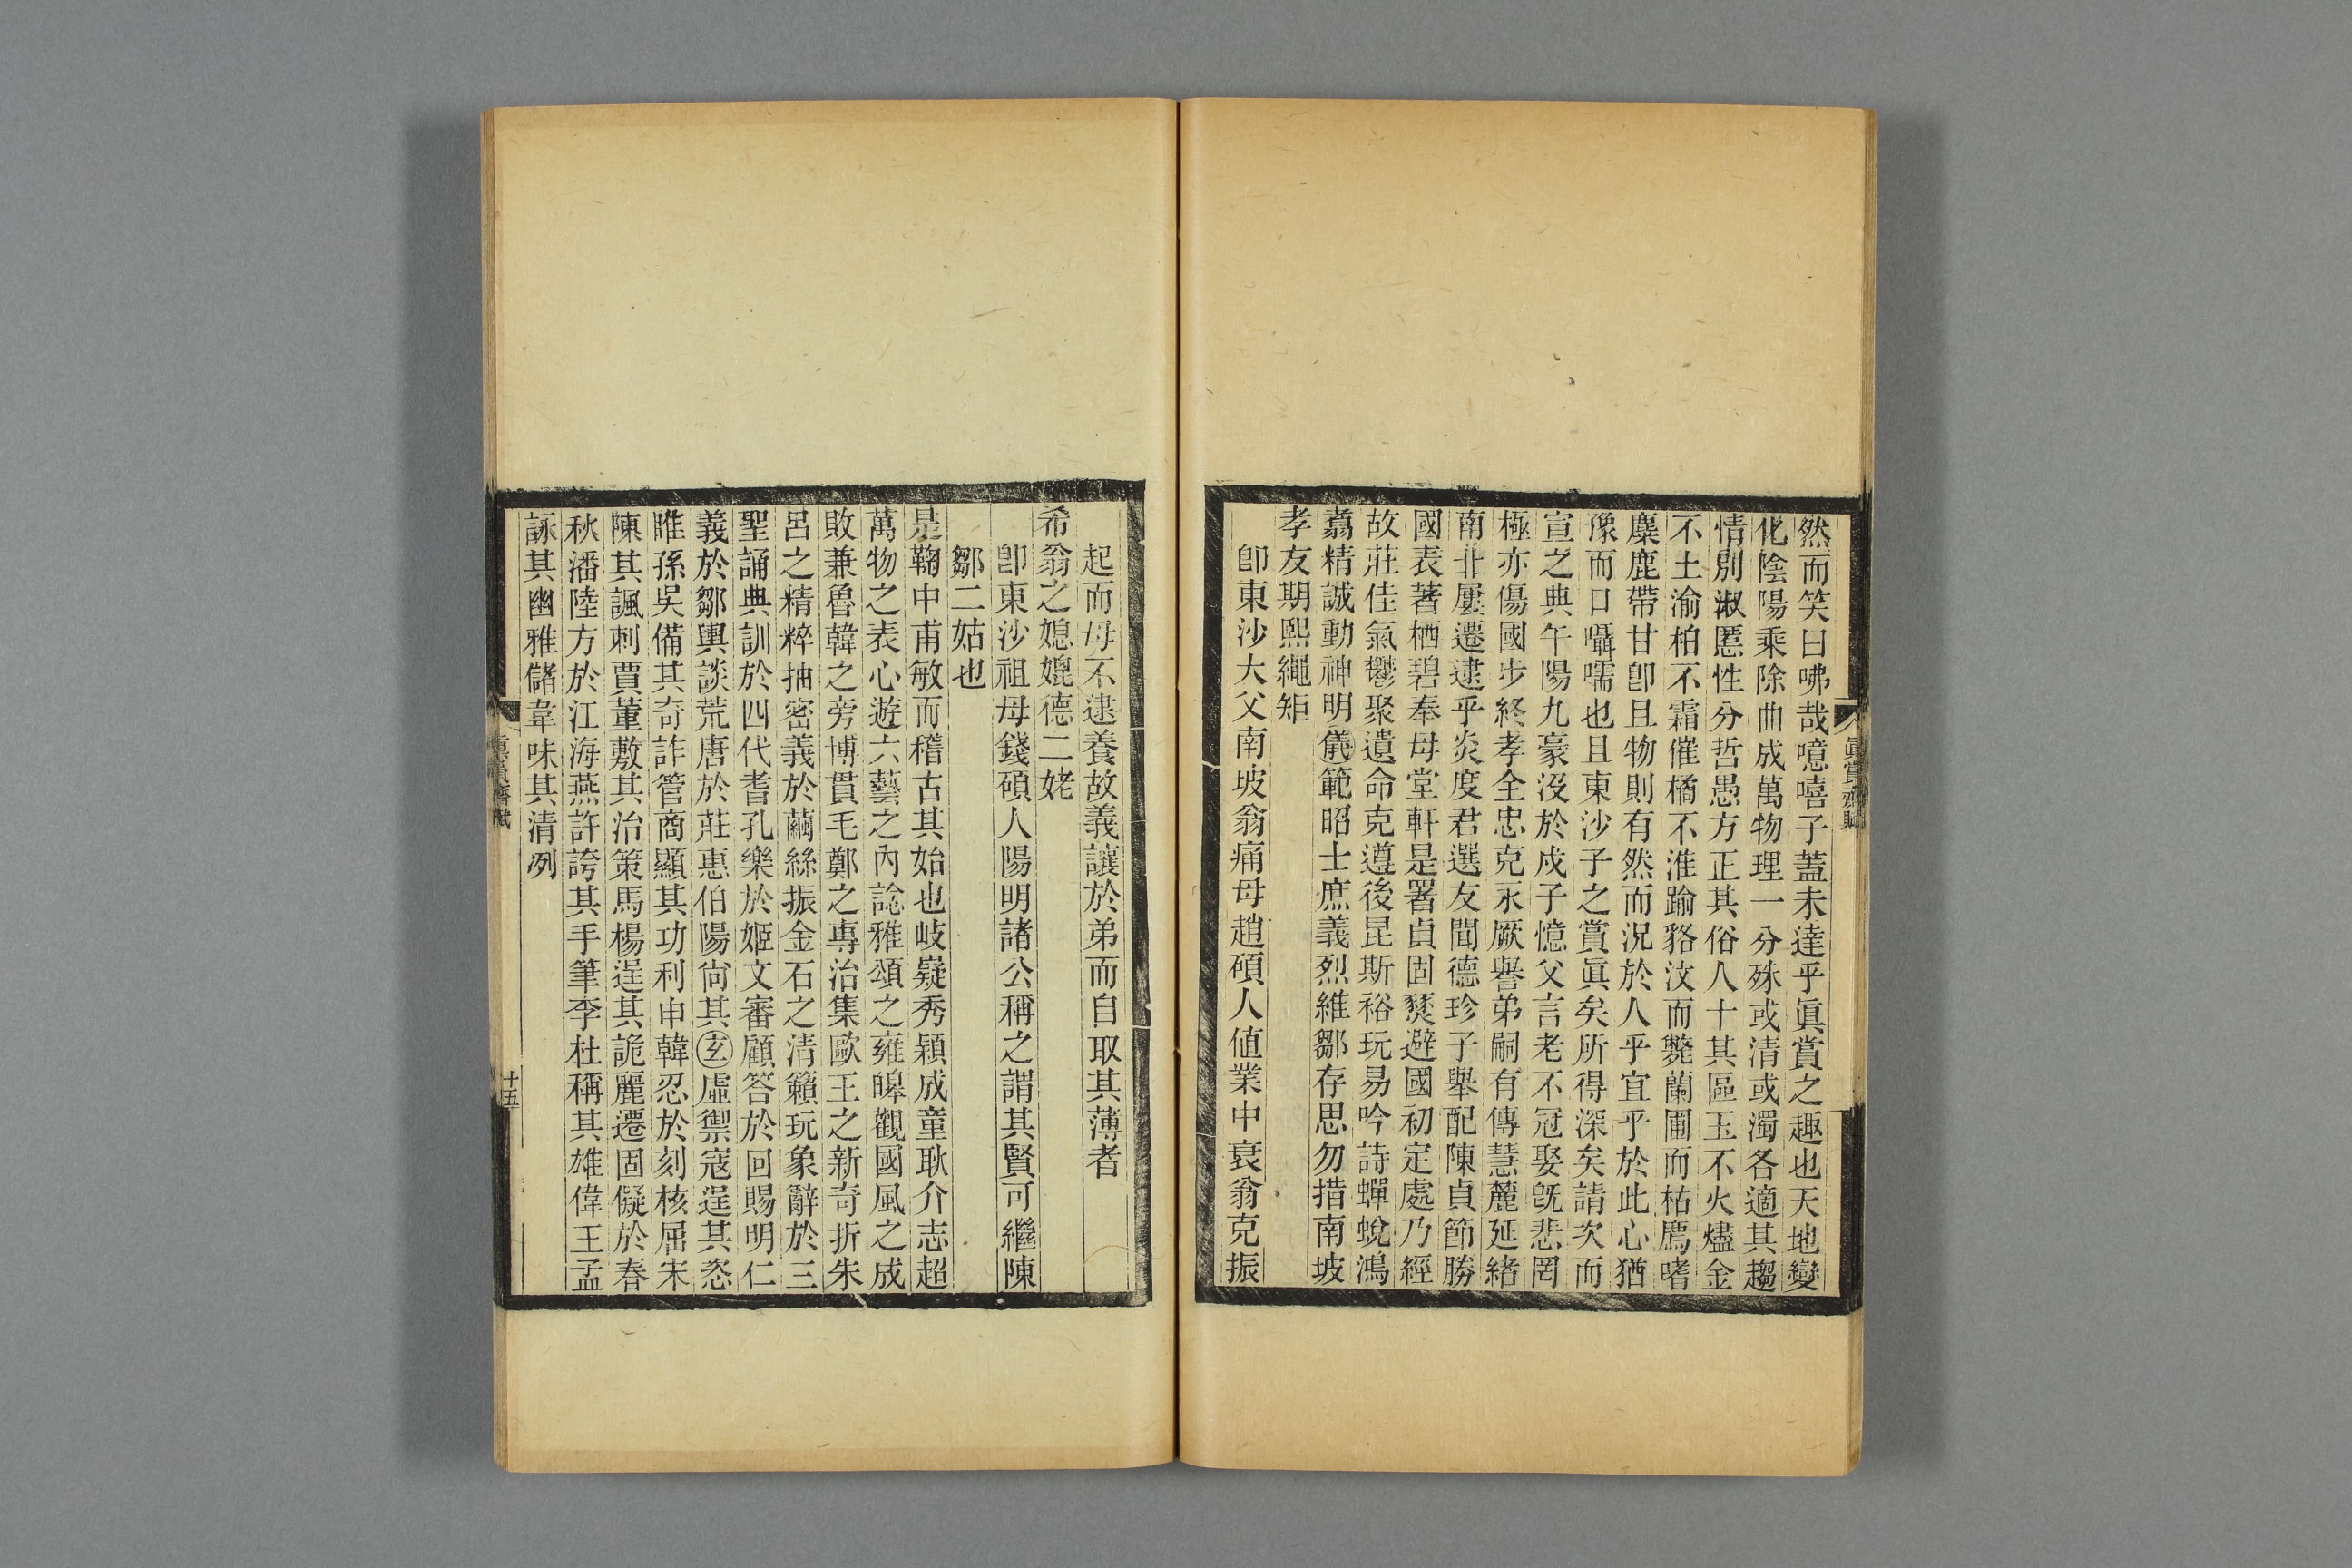 然而笑曰咈哉噫嘻子蓋未達乎眞賞之趣也天地變
化陰陽乘除曲成萬物理一分殊或清或濁各適其趨
情別淑慝性分哲愚方正其俗八十其區玉不火爐金
不土渝柏不霜催橘不淮踰貉汶而斃蘭圃而枯鴈嗜
麋鹿帶甘卽且物則有然而況於人乎宜乎於此心猶
豫而口囁嚅也且東沙子之賞眞矣所得深矣請次而
宣之典午陽九豪沒於戍子憶父言老不冠娶旣悲罔
極亦傷國步終孝全忠克永厥譽弟嗣有傳慧麓延緒
南北屢遷逮乎炎度君選友聞德珍子舉配陳貞節勝
國表著栖碧奉母堂軒是署貞固爕避國初定處乃經
故莊佳氣鬱聚遺命克遵後昆斯裕玩易吟詩蟬蛻鴻
翥精誠動神明儀範昭士庶義烈維鄒存思勿措南坡
孝友期熙繩矩
卽東沙大父南坡翁痛母趙碩人値業中衰翁克振
眞賞齋賦
起而母不逮養故義讓於弟而自取其薄者
希翁之媳媲德二姥
卽東沙祖母錢碩人陽明諸公稱之謂其賢可繼陳
鄒二姑也
是鞠中甫敏而稽古其始也岐嶷秀穎成童耿介志超
萬物之表心遊六藝之內諗雅頌之雍皥觀國風之成
敗兼魯韓之旁博貫毛鄭之專治集歐王之新奇折朱
呂之精粹抽密義於繭絲振金石之清籟玩象辭於三
聖誦典訓於四代耆孔樂於姬文審顧答於回賜明仁
義於鄒輿談荒唐於莊惠伯陽尙其玄虛禦寇逞其恣
睢孫吳備其奇詐管商顯其功利申韓忍於刻核屈宋
陳其諷刺賈董敷其治策馬楊逞其詭麗遷固儗於春
秋潘陸方於江海燕許誇其手筆李杜稱其雄偉王孟
詠其幽雅儲韋味其清冽
十五